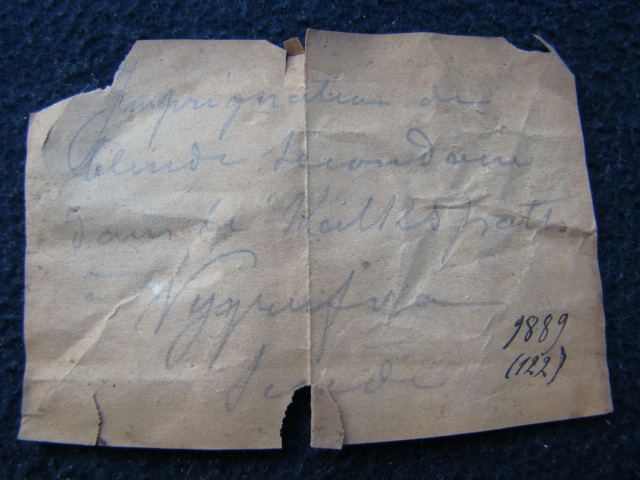 Imprégnation de
blende secondaire
dans le Kalkspath
à Nygrufva
1889
Suède
(122)